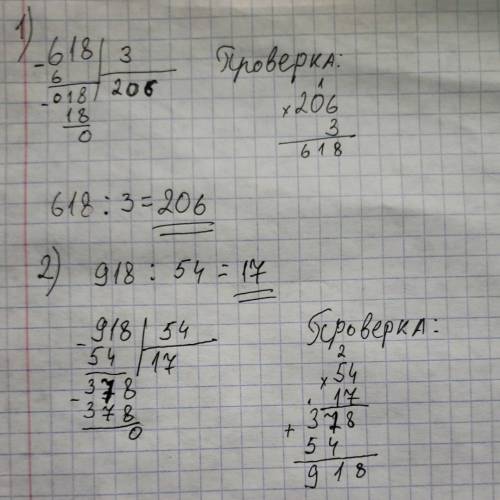 1)
-618 | 3
6 | 206
-018
18
0
Проверка:
1
×206
3
618
618 : 3 = 206
2) 918 : 54 = 17
-918 | 54
54 | 17
-378
378
0
Проверка:
2
×54
17
1
+378
54
918